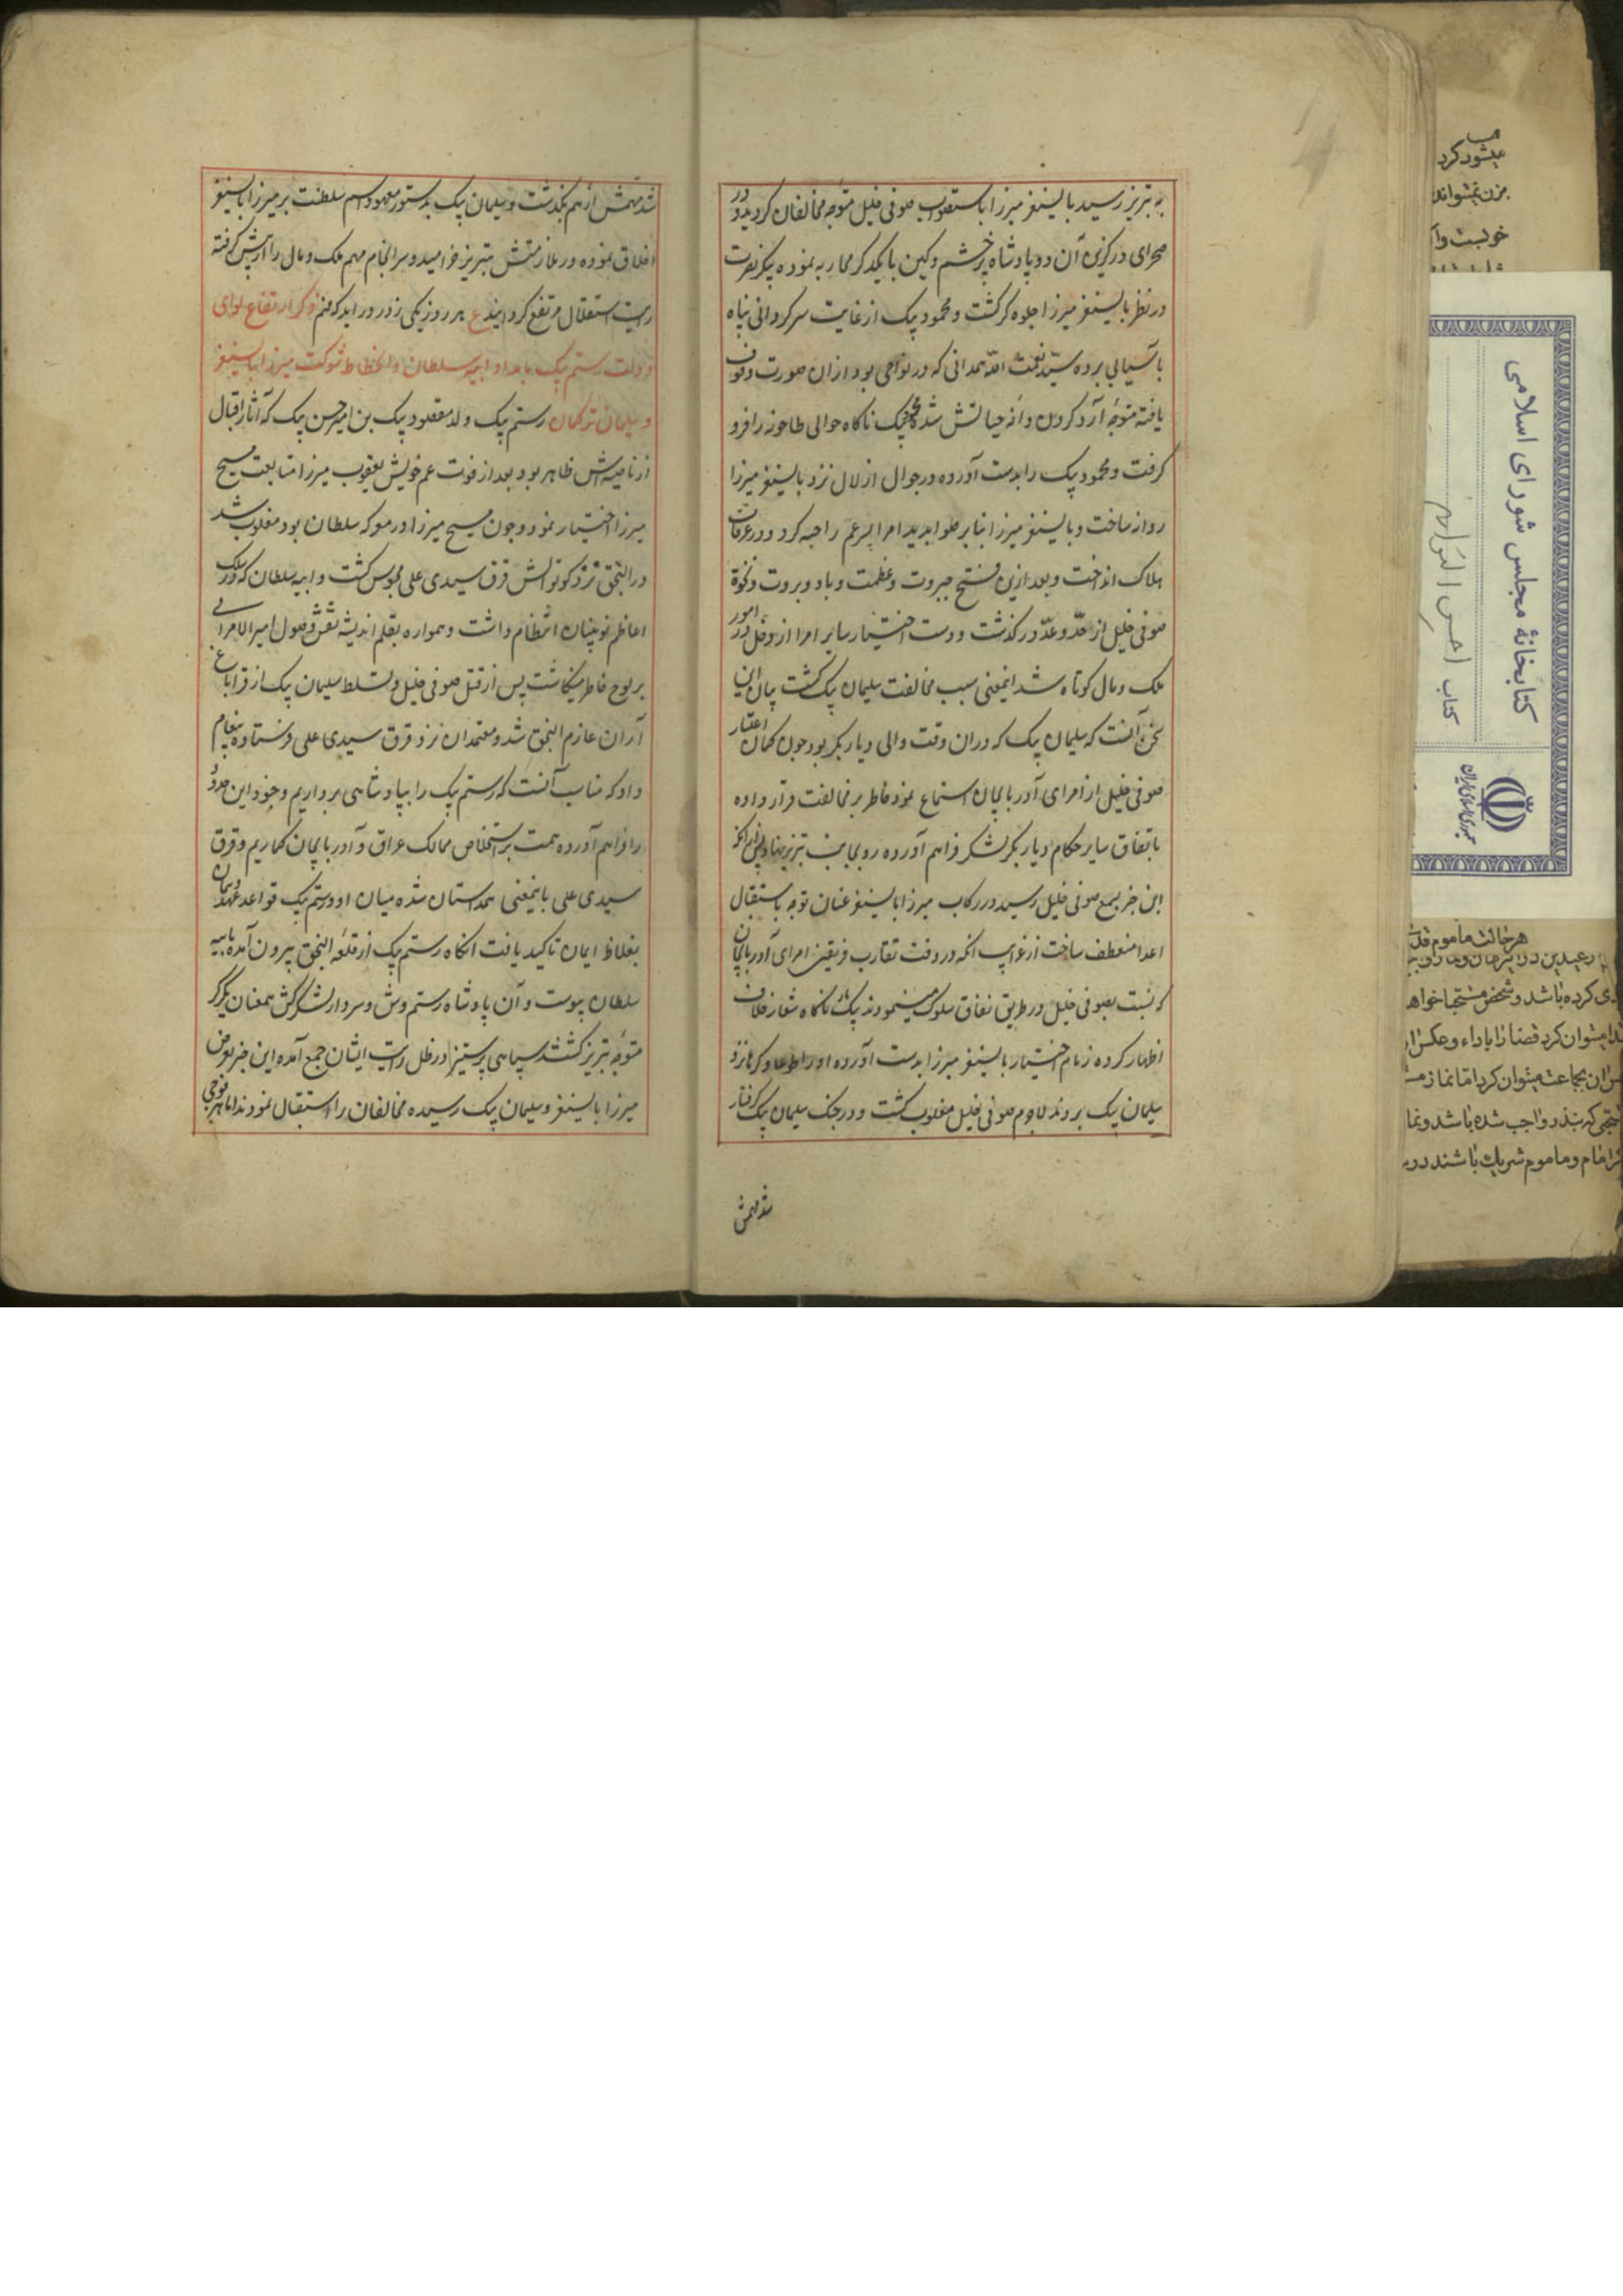 به تبریز رسید بایسنغر میرزا باستصواب صوفی خلیل متوجه مخالفان گردید و در
صحرای درگزین آن دو پادشاه پر خشم و کین با یکدیگر محاربه نموده پیکر نصرت
در نظر بایسنغر میرزا جلوه گر گشت و محمود بیک از غایت سرگردانی پناه
بآسیابی برده سید نعمت الله همدانی که در نواحی بود ازان صورت وقوف
یافته متوجه آرد کردن دانه حیاتش شد ناگاه حوالی طاحونه را فرو
گرفت و محمود بیک را بدست آورده در جوال نزد بایسنغر میرزا
روانه ساخت و بایسنغر میرزا بنابر صوابدید امرا پسر عم را خبه کرد و در غرقاب
هلاک انداخت و بعد ازین فتح جبروت و عظمت و باد و بروت و نخوة
صوفی خلیل از حد و عد درگذشت و دست اختیار سایر امرا از دخل در امور
ملک و مال کوتاه شد اینمعنی سبب مخالفت سلیمان بیک گشت بیان این
سخن آنست که سلیمان بیک که دران وقت والی دیار بکر بود چون کمال اعتبار
صوفی خلیل از امرای آذربایجان استماع نمود خاطر بر مخالفت قرار داده
باتفاق سایر حکام دیار بکر لشکر فراهم آورده روی بجانب تبریز نهاد
این خبر بسمع صوفی خلیل رسید در رکاب میرزا بایسنغر عنان توجه باستقبال
اعدا منعطف ساخت از غرایب آنکه در وقت تقارب فریقین امرای آذربایجان
که نسبت بصوفی خلیل در طریق نفاق سلوک مینمودند بیک ناگاه شعار خلاف
اظهار کرده زمام اختیار بایسنغر میرزا بدست آورده او را طوعا و کرها نزد
سلیمان بیک بردند لاجرم صوفی خلیل مغلوب گشت و در جنگ سلیمان بیک گرفتار
شد مهمش
شد مهمش ازهم بگذشت و سلیمان بیک بدستور معهود اسم سلطنت بر میرزا بایسنغر
اطلاق نموده در ملازمتش بتبریز خرامید و سرانجام مهم ملک و مال را از پیش گرفته
رایت استقلال مرتفع گردانید ع هر روز یکی ز در درآید که منم ذکر ارتفاع لوای
دولت رستم بیک بامداد ایبه سلطان و انحطاط شوکت میرزا بایسنغر
و سلیمان ترکمان رستم بیک ولد مقصود بیک بن امیر حسن بیک که آثار اقبال
از ناصیه‌اش ظاهر بود بعد از فوت عم خویش یعقوب میرزا متابعت مسیح
میرزا اختیار نمود و چون مسیح میرزا در معرکه سلطان بود مغلوب شد
در النجق نزد کوتوالش قرق سیدی علی محبوس گشت و ایبه سلطان که در سلک
اعاظم نوئینان انتظام داشت و همواره بقلم اندیشه نقش وصول امیر الامرایی
بر لوح خاطر مینگاشت پس از قتل صوفی خلیل و تسلط سلیمان بیک از قراباغ
آران عازم النجق شد و معتمدان نزد قرق سیدی علی فرستاده پیغام
داد که مناسب آنست که رستم بیک را بپادشاهی برداریم و جنود این حدود
را فراهم آورده همت بر استخلاص ممالک عراق و آذربایجان گماریم و قرق
سیدی علی باینمعنی همداستان شده میان او و رستم بیک قواعد عهد و پیمان
بغلاظ ایمان تاکید یافت آنگاه رستم بیک از قلعه النجق بیرون آمده بایبه
سلطان پیوست و آن پادشاه رستم وش و سردار لشکرکش همعنان یکدیگر
متوجه تبریز گشتند سپاهی پر ستیز در ظل رایت ایشان جمع آمده این خبر بعرض
میرزا بایسنغر و سلیمان بیک رسیده مخالفان را استقبال نمودند اما هر فوجی
میشود کرد
بزن نمیتواند
هر حالت ماموم
ی کرده باشد و شخص مستحبا خواهد
میتوان کرد قضا را باداء و عکس
بجماعت میتوان کرد اما نماز
که بنذر واجب شده باشد و نما
امام و ماموم شریک باشند در
کتابخانهٔ مجلس شورای اسلامی
کتاب احسن التواریخ
جمهوری اسلامی ایران